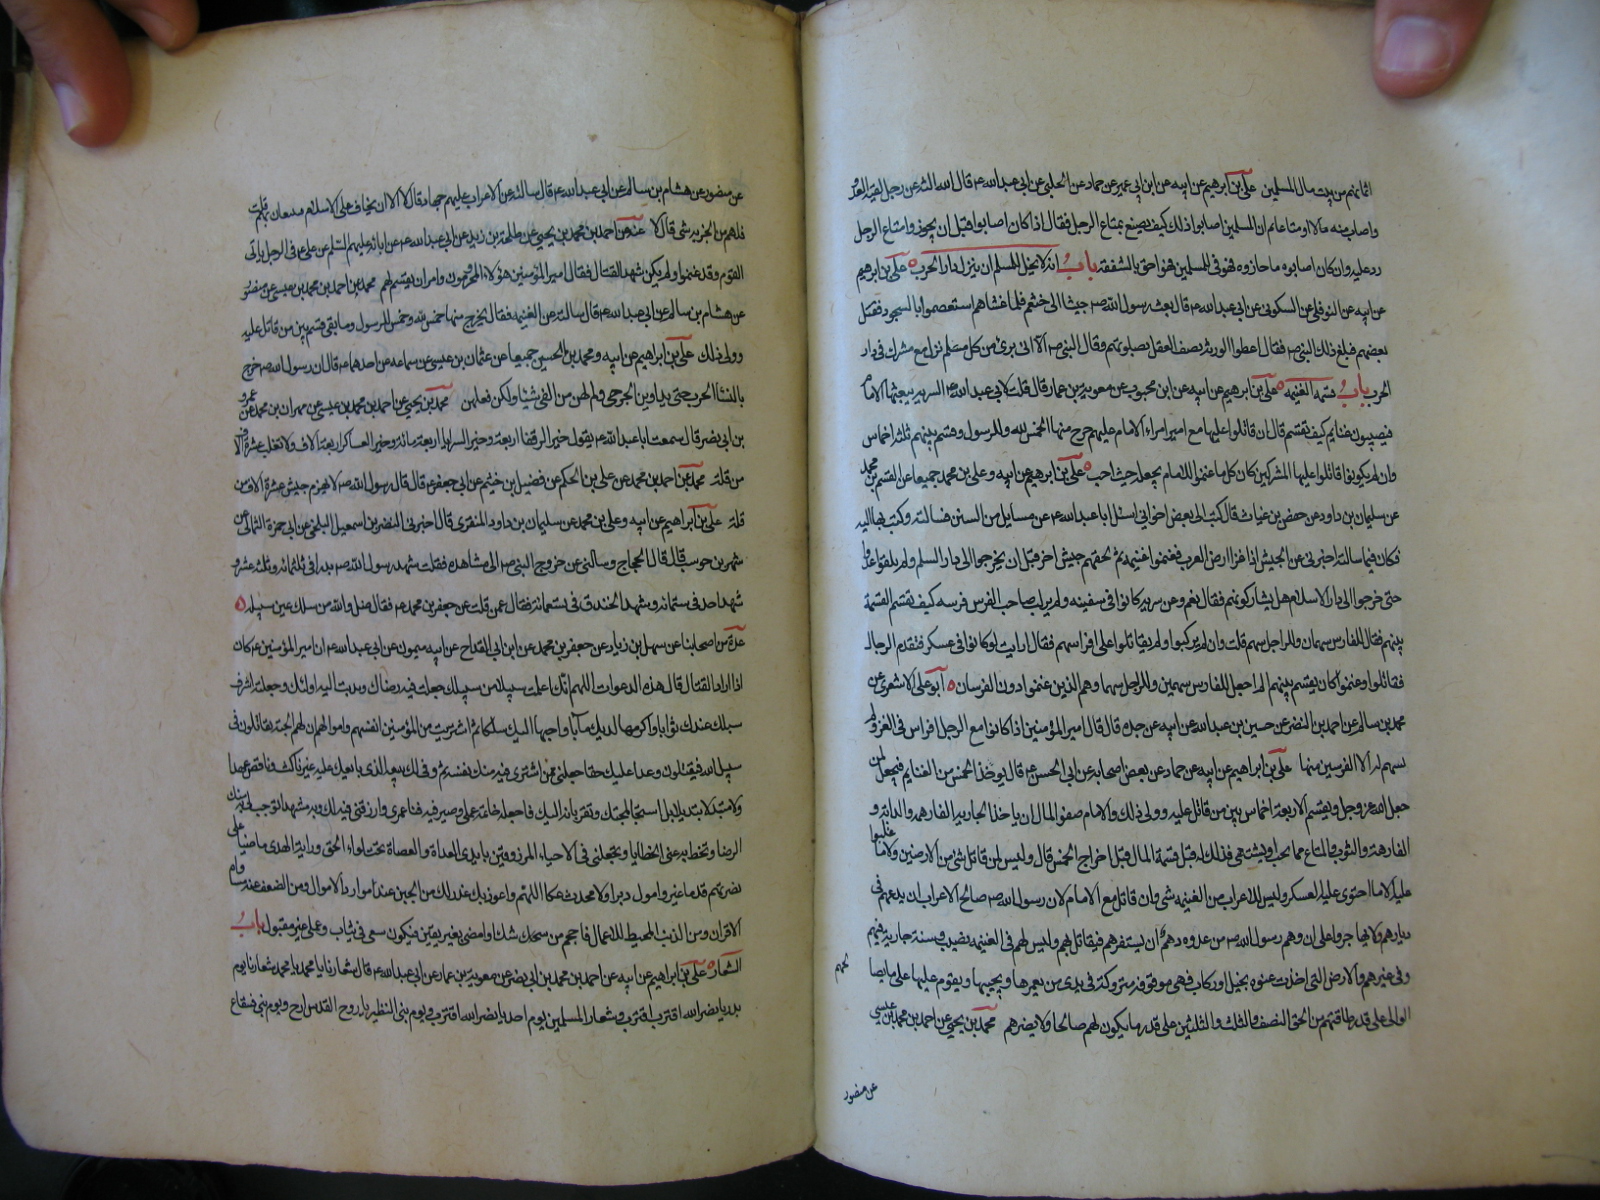 اثمانهم من بيت مال المسلمين علي بن ابرهيم عن ابيه عن ابن ابي عمير عن حماد عن الحلبي عن ابي عبد الله ع قال سالته عن رجل لقيه العدو
واصاب منه مالا او متاعا ثم ان المسلمين اصابوا ذلك كيف يصنع بمتاع الرجل فقال اذا كان اصابوه قبل ان يحوزوا متاع الرجل
رد عليه وان كان اصابوه ما حازوه فهو في المسلمين فهو احق بالشفعة باب انه لا يحل للمسلم ان ينزل دار الحرب علي بن ابرهيم
عن ابيه عن النوفلي عن السكوني عن ابي عبد الله ع قال بعث رسول الله ص جيشا الى خثعم فلما غشاهم استعصموا بالسجود فقتل
بعضهم فبلغ ذلك النبي ص فقال اعطوا الورثة نصف العقل بصلوتهم وقال النبي ص الا اني بريء من كل مسلم نزل مع مشرك في دار
الحرب باب قسمة الغنيمة علي بن ابرهيم عن ابيه عن ابن محبوب عن معوية بن عمار قال قلت لابي عبد الله ع السرية يبعثها الامام
فيصيبون غنايم كيف تقسم قال ان قاتلوا عليها مع امير امره الامام عليهم اخرج منها الخمس لله وللرسول وقسم بينهم ثلثة اخماس
وان لم يكونوا قاتلوا عليها المشركين كان كل ما غنموا للامام يجعله حيث احب علي بن ابرهيم عن ابيه وعلي بن محمد جميعا عن القسم بن محمد
عن سليمان بن داود عن حفص بن غياث قال كتب الي بعض اخواني اسئل ابا عبد الله ع عن مسايل من السنن فسالته وكتبت بها اليه
فكان فيما سالته اخبرني عن الجيش اذا غزا ارض الحرب فغنموا غنيمة ثم لحقهم جيش اخر قبل ان يخرجوا الى دار السلم ولم يلقوا عدوا
حتى خرجوا الى دار الاسلام هل يشاركونهم فقال نعم وعن سرية كانوا في سفينة ولم يركب صاحب الفرس فرسه كيف تقسم القسمة
بينهم فقال للفارس سهمان وللراجل سهم قلت وان لم يركبوا ولم يقاتلوا على افراسهم فقال ارايت لو كانوا في عسكر فتقدم الرجالة
فقاتلوا وغنموا كان يقسم بينهم الم اجعل للفارس سهمين وللرجل سهما وهم الذين غنموا دون الفرسان ابو علي الاشعري عن
محمد بن سالم عن احمد بن النضر عن حسين بن عبد الله عن ابيه عن جده قال قال امير المؤمنين اذا كان مع الرجل افراس في الغزو لم
يسهم له الا الفرسين منها علي بن ابراهيم عن ابيه عن حماد عن بعض اصحابه عن ابي الحسن ع قال يوخذ الخمس من الغنايم فيجعل لمن
جعل الله عز وجل ويقسم الاربعة اخماس بين من قاتل عليه وولي ذلك والامام صفو المال ان ياخذ الجارية الفارهة والدابة و
الفارهة والثوب والمتاع مما يحب ويشتهي فذلك له قبل قسمة المال وقبل اخراج الخمس قال وليس لمن قاتل شيء من الارضين ولا ما غلبوا
عليه الا ما احتوى عليه العسكر وليس للاعراب من الغنيمة شيء وان قاتلوا مع الامام لان رسول الله ص صالح الاعراب ان يدعهم في
ديارهم ولا يهاجروا على ان دهم رسول الله ص من عدوه دهم ان يستفزهم فيقاتل بهم وليس لهم في الغنيمة نصيب وسنة جارية فيهم
وفي غيرهم والارض التي اخذت عنوة بخيل او ركاب فهي موقوفة متروكة في يدي من يعمرها ويحييها ويقوم عليها على ما يصالحهم
الوالي على قدر طاقتهم من الحق النصف والثلث والثلثين على قدر ما يكون لهم صالحا ولا يضرهم محمد بن يحيى عن احمد بن محمد بن عيسى
عن منصور
عن منصور عن هشام بن سالم عن ابي عبد الله ع قال سالته عن الاعراب عليهم جهاد قال لا الا ان يخاف على الاسلام فيستعان بهم قلت
فلهم من الجزية شيء قال لا عنه عن احمد بن محمد بن يحيى عن طلحة بن زيد عن ابي عبد الله ع عن ابائه عليهم السلم عن علي ع في الرجل ياتي
القوم وقد غنموا ولم يكن شهد القتال فقال امير المؤمنين هؤلاء المحرومون وامر ان يقسم لهم محمد بن احمد بن محمد بن عيسى عن منصور
عن هشام بن سالم عن ابي عبد الله ع قال سالته عن الغنيمة فقال يخرج منها خمس لله وخمس للرسول وما بقي قسم بين من قاتل عليه
وولي ذلك علي بن ابراهيم عن ابيه ومحمد بن الحسين جميعا عن عثمان بن عيسى عن سماعة عن احدهما ع قال ان رسول الله ص خرج
بالنساء الحرب حتى يداوين الجرحى ولم يقسم لهن من الفيء شيئا ولكن نفلهن محمد بن يحيى عن احمد بن محمد بن عيسى عن مهران بن محمد عن عمرو
بن ابي نصر قال سمعت ابا عبد الله ع يقول خير الرفقا اربعة وخير السرايا اربعة مائة وخير العساكر اربعة الاف ولا تغلب عشرة الاف
من قلة محمد عن احمد بن محمد عن علي بن الحكم عن فضيل بن خثيم عن ابي جعفر ع قال قال رسول الله ص لا يهزم جيش عشرة الاف من
قلة علي بن ابراهيم عن ابيه وعلي بن محمد عن سليمان بن داود المنقري قال اخبرني النضر بن اسمعيل البلخي عن ابي حمزة الثمالي عن
شهر بن حوشب قال قال الحجاج وسالني عن خروج النبي ص الى مشاهده فقلت شهد رسول الله ص بدرا في ثلثمائة وثلثة عشر و
شهد احد في ستمائة وشهد الخندق في تسعمائة فقال عمن قلت عن جعفر بن محمد ع فقال ضل والله من سلك غير سبيله
عدة من اصحابنا عن سهل بن زياد عن جعفر بن محمد عن ابن ابي القداح عن ابيه ميمون عن ابي عبد الله ع ان امير المؤمنين ع كان
اذا اراد القتال قال هذه الدعوات اللهم انك اعلمت سبيلا من سبلك جعلت فيه رضاك وندبت اليه اولياءك وجعلته اشرف
سبلك عندك ثوابا واكرمها لديك مآبا واحبها اليك مسلكا ثم اشتريت من المؤمنين انفسهم واموالهم بان لهم الجنة يقاتلون في
سبيل الله فيقتلون وعدا عليك حقا فاجعلني ممن اشترى فيه منك نفسه ثم وفى لك ببيعه الذي بايعك عليه غير ناكث ولا ناقض عهدا
ولا مبدلا تبديلا بل استيجابا لمحبتك وتقربا به اليك فاجعله خاتمة عملي وصير فيه فناء عمري وارزقني فيه لك وبه مشهدا توجب لي به منك
الرضا وتحط به عني الخطايا وتجعلني في الاحياء المرزوقين بايدي العداة والعصاة تحت لواء الحق وراية الهدى ماضيا على
نصرتهم قدما غير مول دبرا ولا محدث شكا اللهم واعوذ بك عند ذلك من الجبن عند موارد الاموال ومن الضعف عند مساواه
الاقران ومن الذنب المحيط للاعمال فاحجم من شك او امضي بغير يقين فيكون سعيي في تباب وعملي غير مقبول باب
الشعار علي بن ابراهيم عن ابيه عن احمد بن محمد بن ابي نصر عن معوية بن عمار عن ابي عبد الله ع قال شعارنا يا محمد يا محمد شعارنا يوم
بدر يا نصر الله اقترب اقترب وشعار المسلمين يوم احد يا نصر الله اقترب ويوم بني النظير يا روح القدس ارح ويوم بني قينقاع